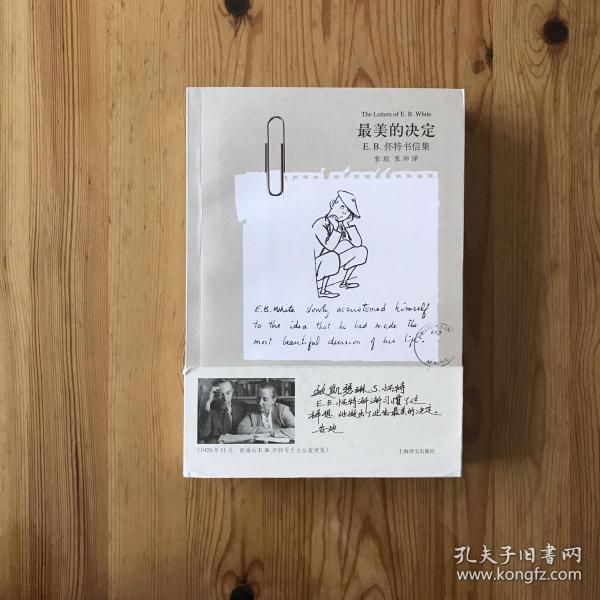 The Letters of E. B. White
最美的决定
E. B. 怀特书信集
张琼 张冲 译
E.B. White slowly accustomed himself
to the idea that he had made the
most beautiful decision of his life.
BROOKLIN
MAINE
致凯瑟琳 S. 怀特
E.B.怀特渐渐习惯了这
种想,他做出了此生最美的决定。
安迪
(1929年11月,新婚的E. B. 怀特写于办公室便笺)
上海译文出版社
孔夫子旧书网
www.kongfz.com